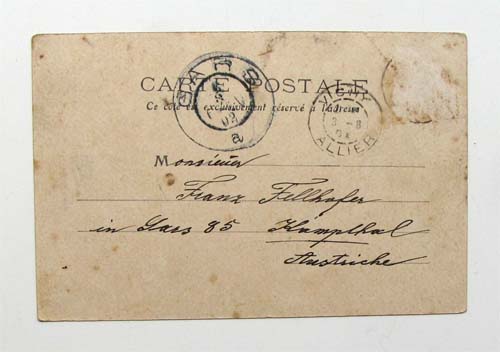 CARTE POSTALE
Ce côté est exclusivement réservé à l'adresse
GARS
02
a
VICHY
3 - 8
ALLIER
Monsieur
Franz Fellhofer
in Gars 85 Kampthal
Austriche